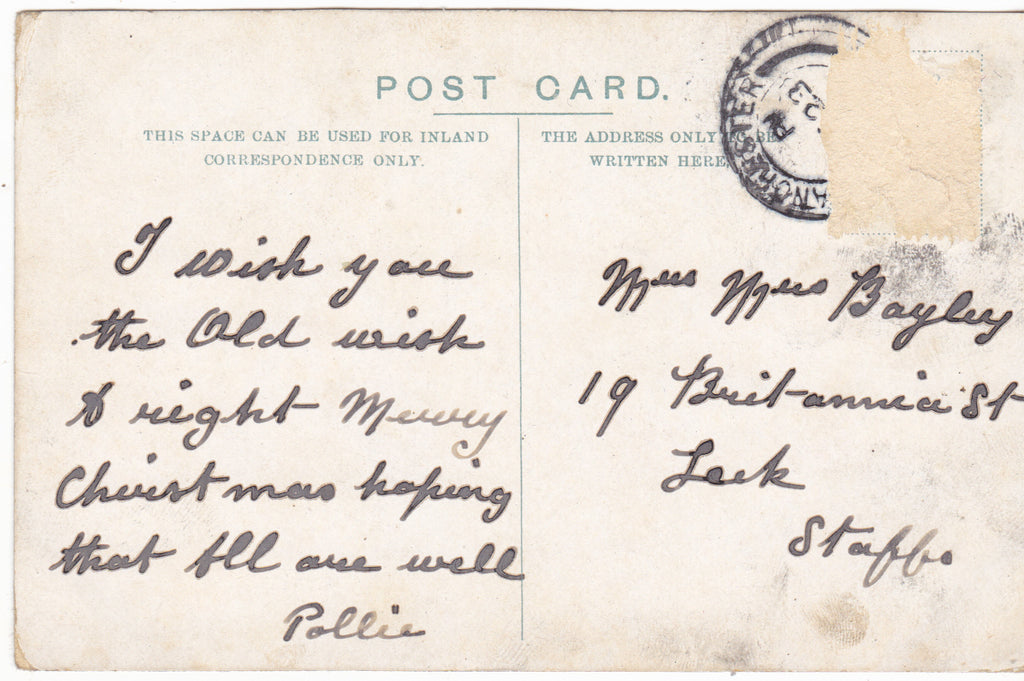 POST CARD.
THIS SPACE CAN BE USED FOR INLAND
CORRESPONDENCE ONLY.
THE ADDRESS ONLY TO BE
WRITTEN HERE
I wish you
the Old wish
A right Merry
Christmas hoping
that All are well
Pollie
Mrs Bayley
19 Britannia St
Leek
Staffs
ANCHESTER
23